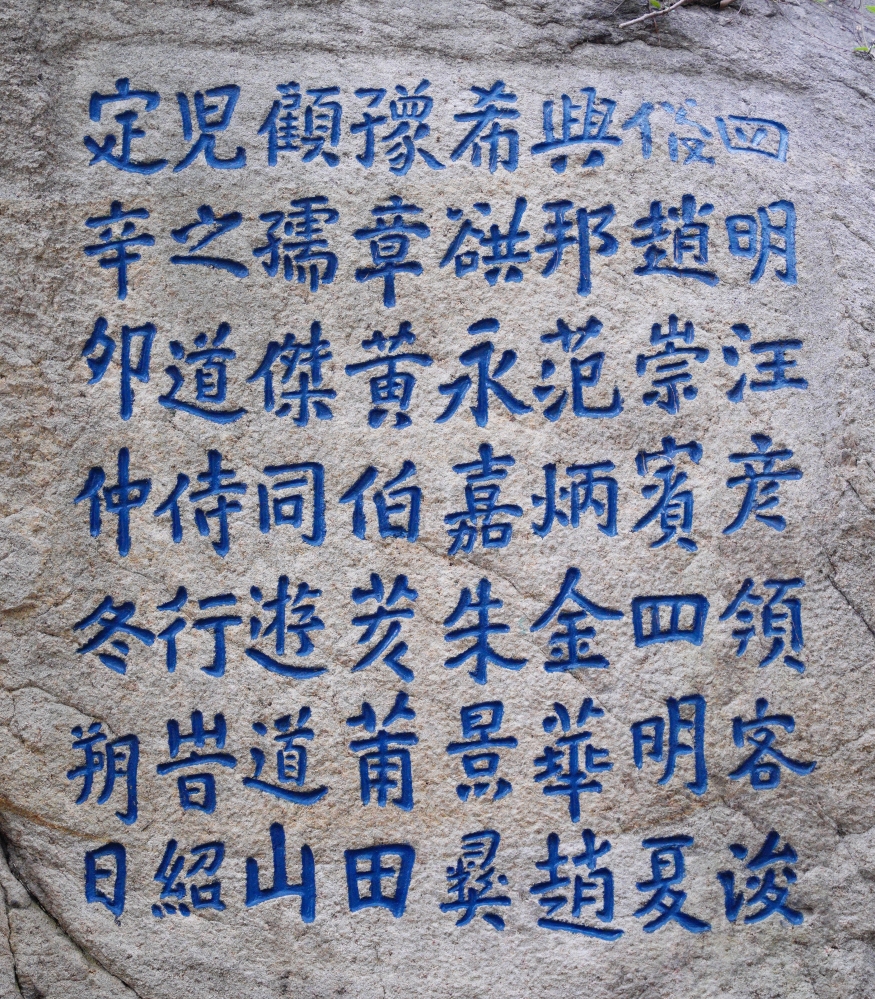 四明汪彦領客浚
俊趙崇賓四明夏
興邦范炳金華趙
希谼永嘉朱景彛
豫章黄伯莆田
顧孺傑同遊道山
児之道侍行旹紹
定辛卯仲冬朔日